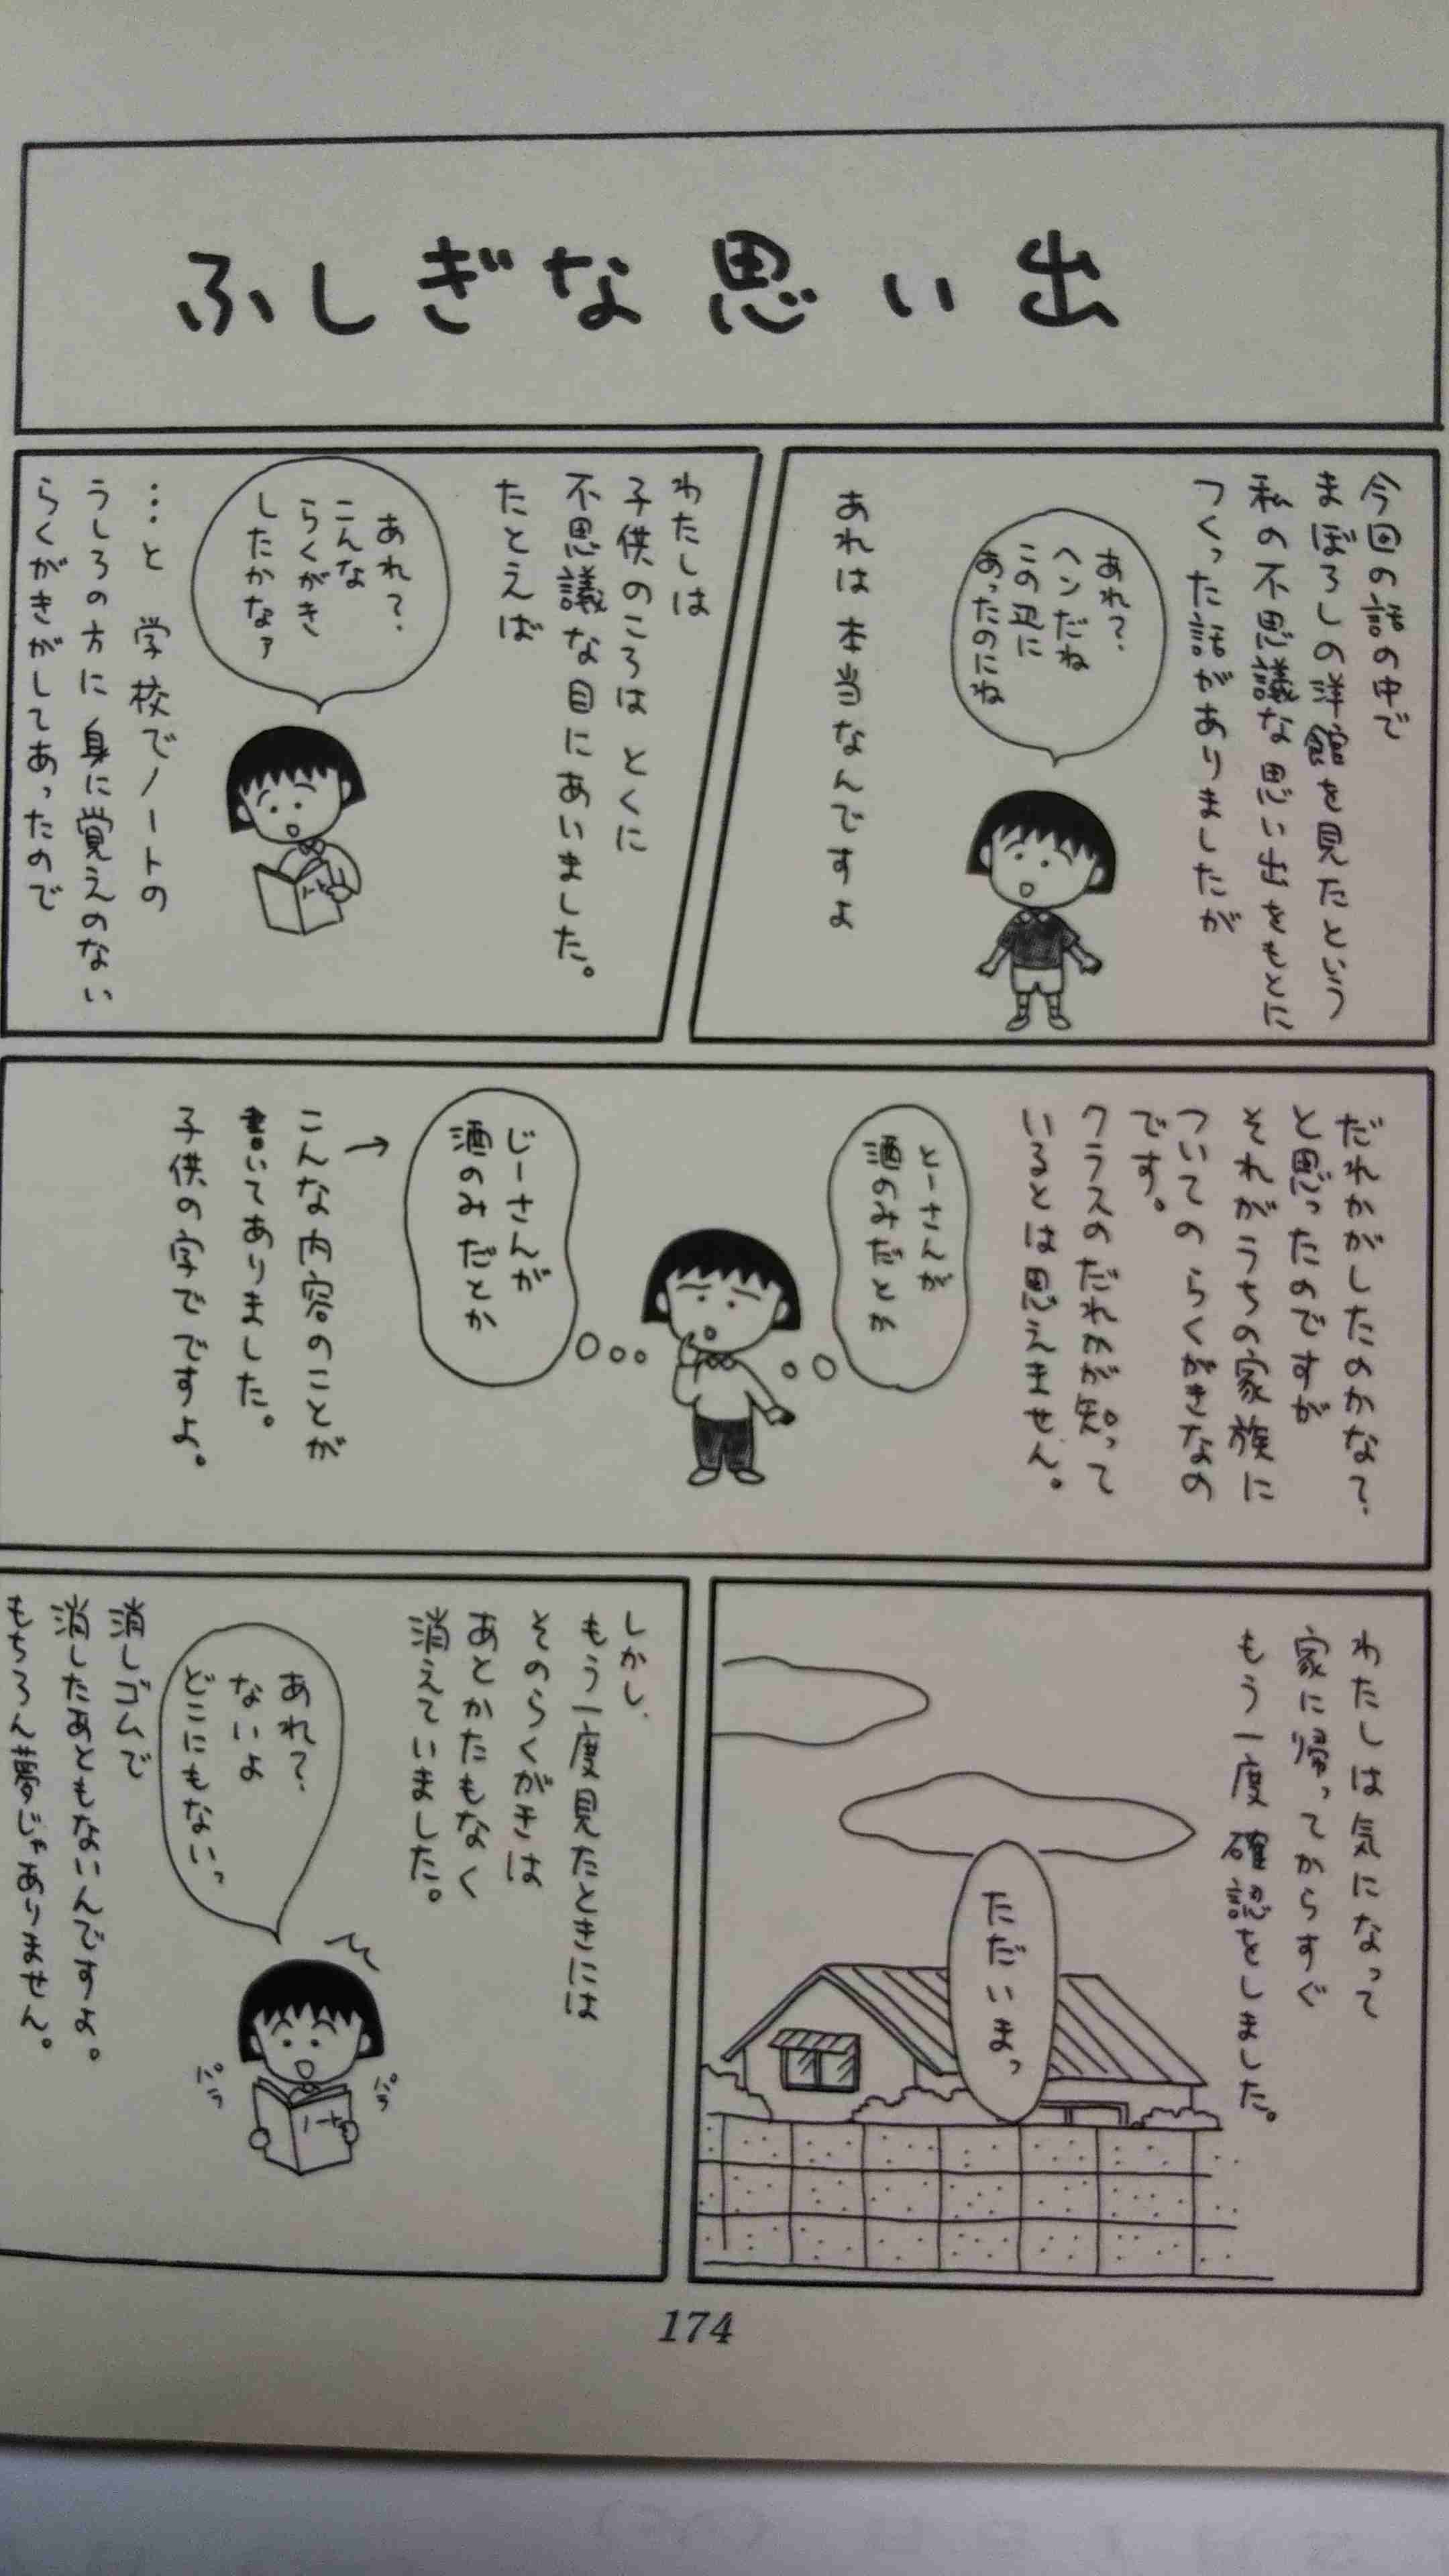 ふしぎな思い出
今回の話の中で
まぼろしの洋館を見たという
私の不思議な思い出をもとに
つくった話がありましたが
あれ？
ヘンだね
この辺に
あったのにね
あれは本当なんですよ
わたしは
子供のころは とくに
不思議な目にあいました。
たとえば
あれ？
こんな
らくがき
したかなァ
…と 学校でノートの
うしろの方に 身に覚えのない
らくがきがしてあったので
だれかがしたのかな？
と思ったのですが
それがうちの家族に
ついての らくがきなの
です。
クラスのだれかが知って
いるとは思えません。
とーさんが
酒のみだとか
じーさんが
酒のみだとか
こんな内容のことが
書いてありました。
子供の字でですよ。
わたしは気になって
家に帰ってからすぐ
もう一度 確認をしました。
ただいまっ
しかし、
もう一度見たときには
そのらくがきは
あとかたもなく
消えていました。
あれ？
ないよ
どこにもないっ
ノート
パラ
パラ
消しゴムで
消したあともないんですよ。
もちろん夢じゃありません。
174